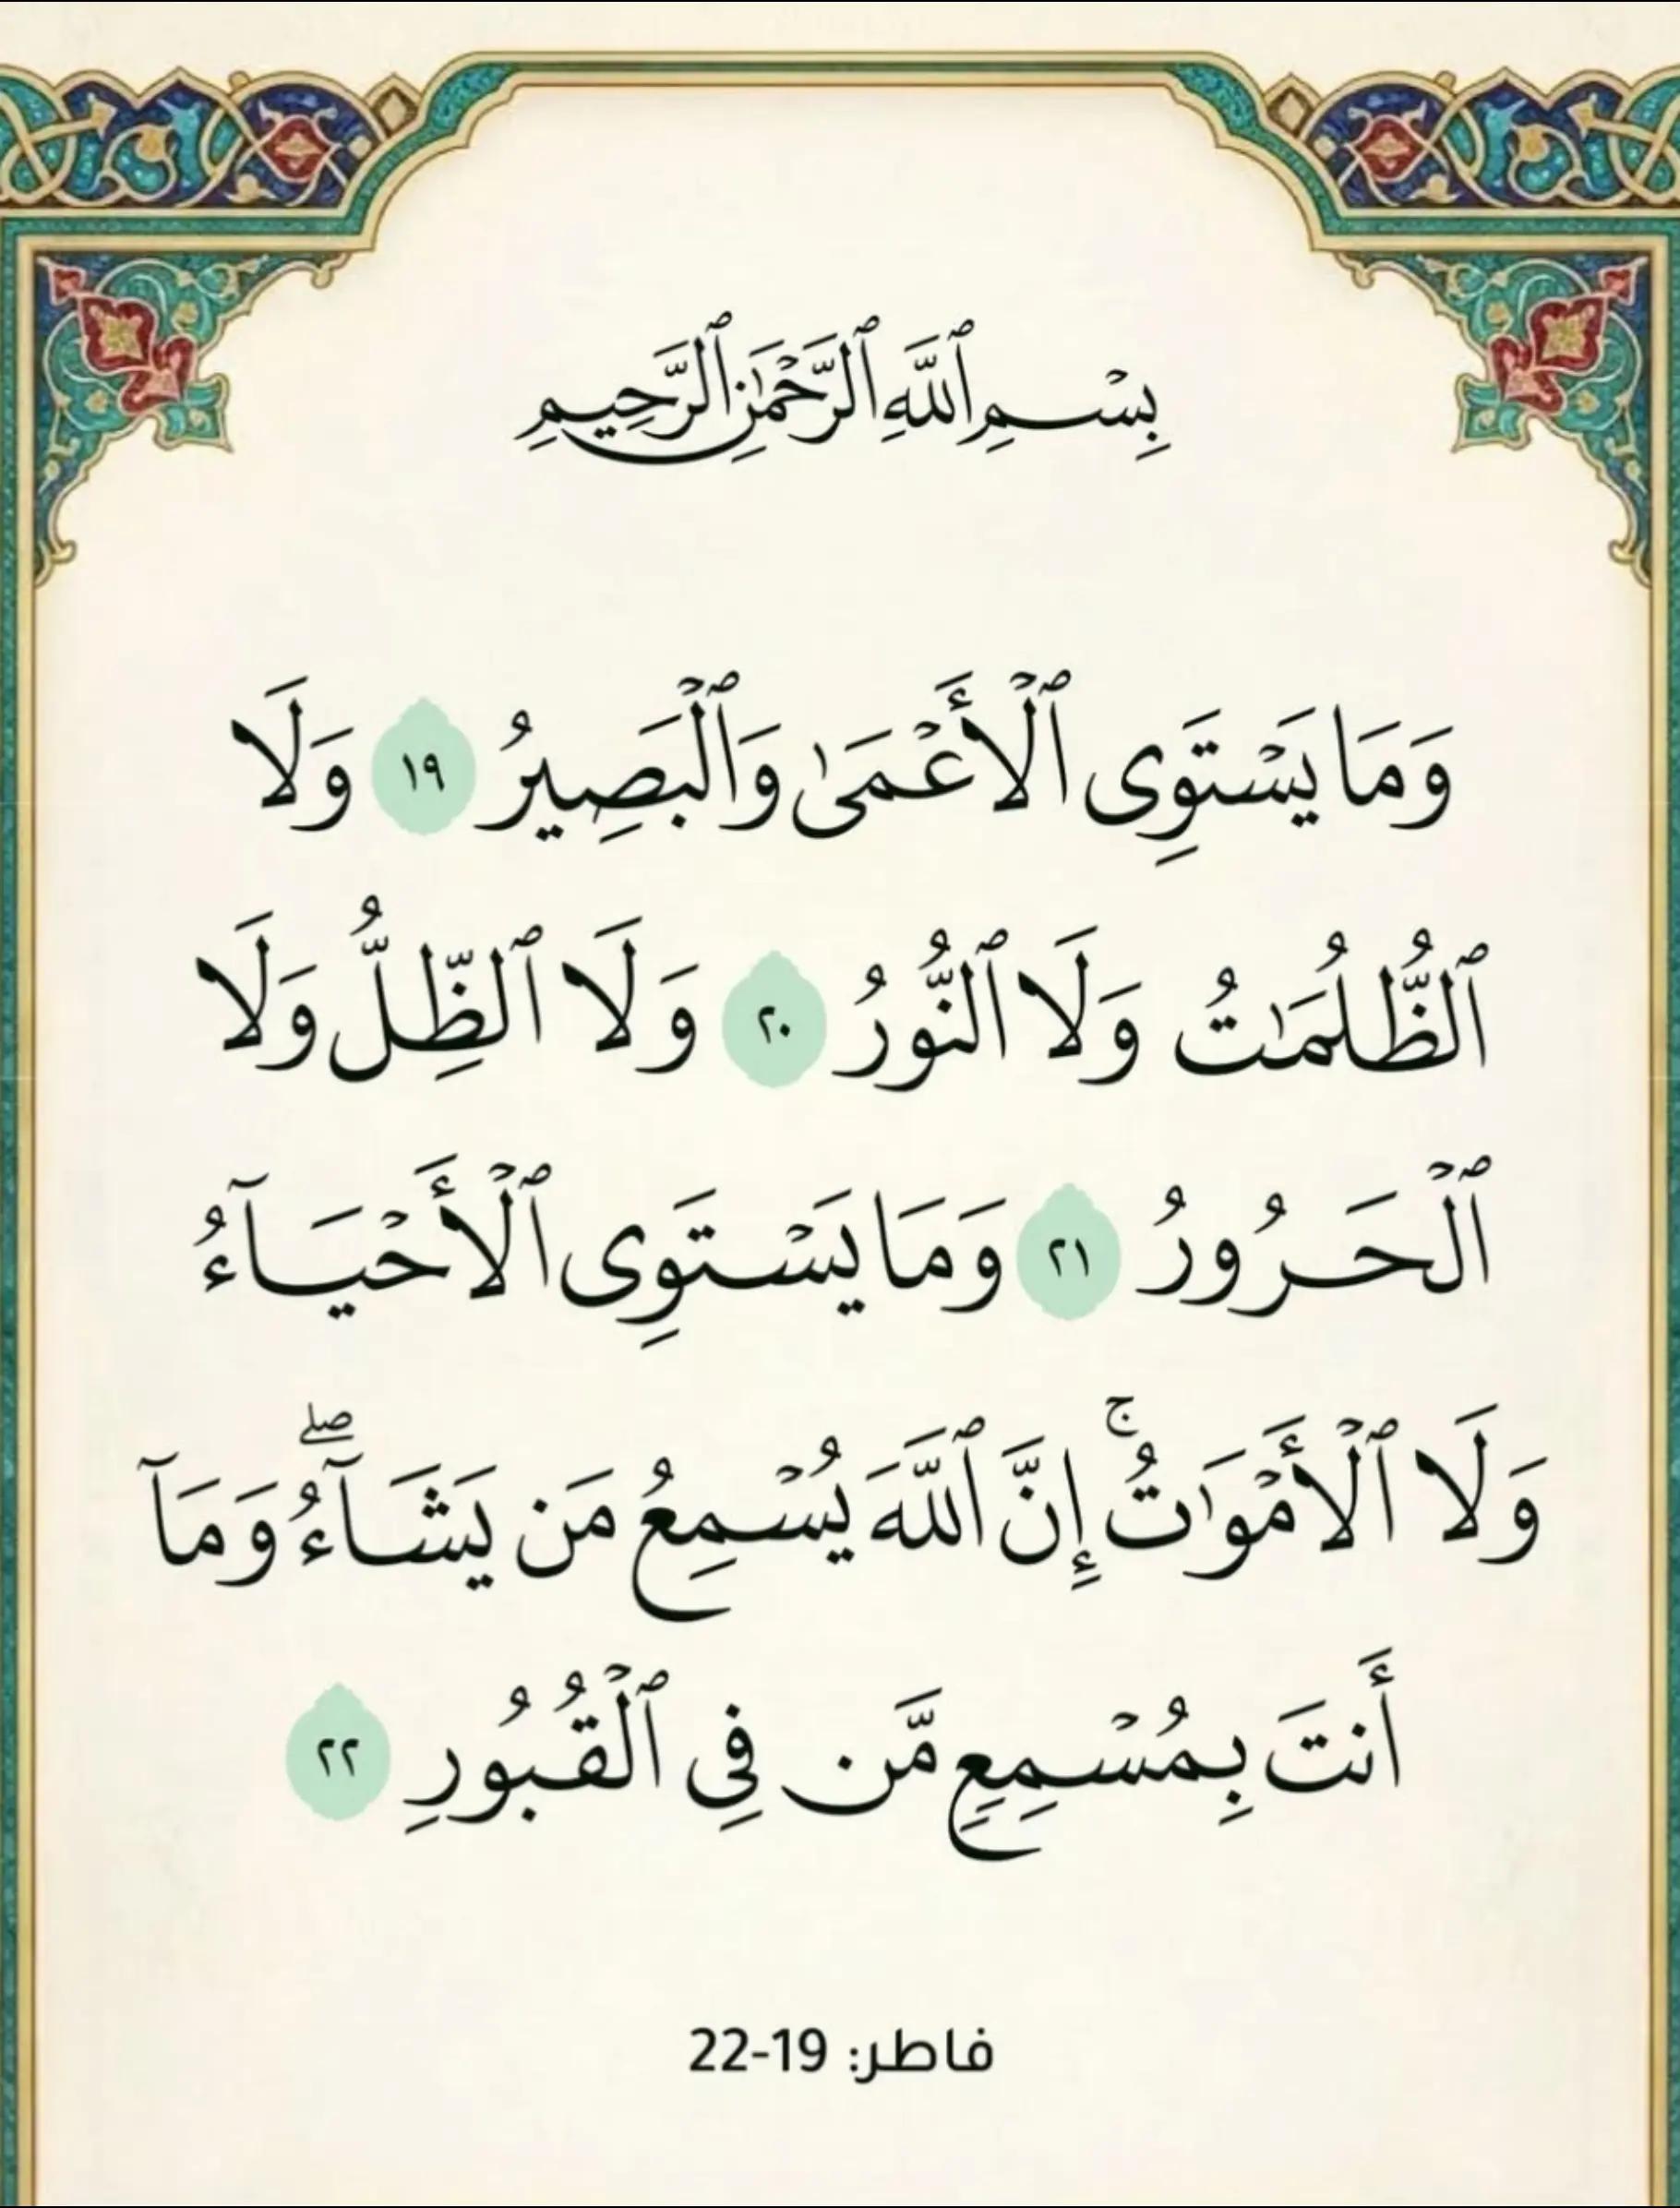 بِسْمِ ٱللَّهِ ٱلرَّحْمَٰنِ ٱلرَّحِيمِ
وَمَا يَسْتَوِى ٱلْأَعْمَىٰ وَٱلْبَصِيرُ ١٩ وَلَا
ٱلظُّلُمَٰتُ وَلَا ٱلنُّورُ ٢٠ وَلَا ٱلظِّلُّ وَلَا
ٱلْحَرُورُ ٢١ وَمَا يَسْتَوِى ٱلْأَحْيَآءُ
وَلَا ٱلْأَمْوَٰتُ ۚ إِنَّ ٱللَّهَ يُسْمِعُ مَن يَشَآءُ ۖ وَمَآ
أَنتَ بِمُسْمِعٍ مَّن فِى ٱلْقُبُورِ ٢٢
فاطر: 19-22